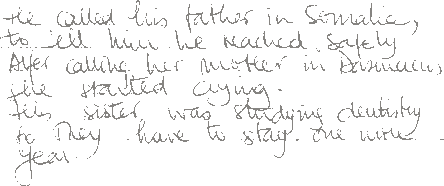 He called his father in Somalia,
to tell him he reached safely
After calling her mother in Damascus,
she started crying.
His sister was studying dentistry
so They have to stay one more
year